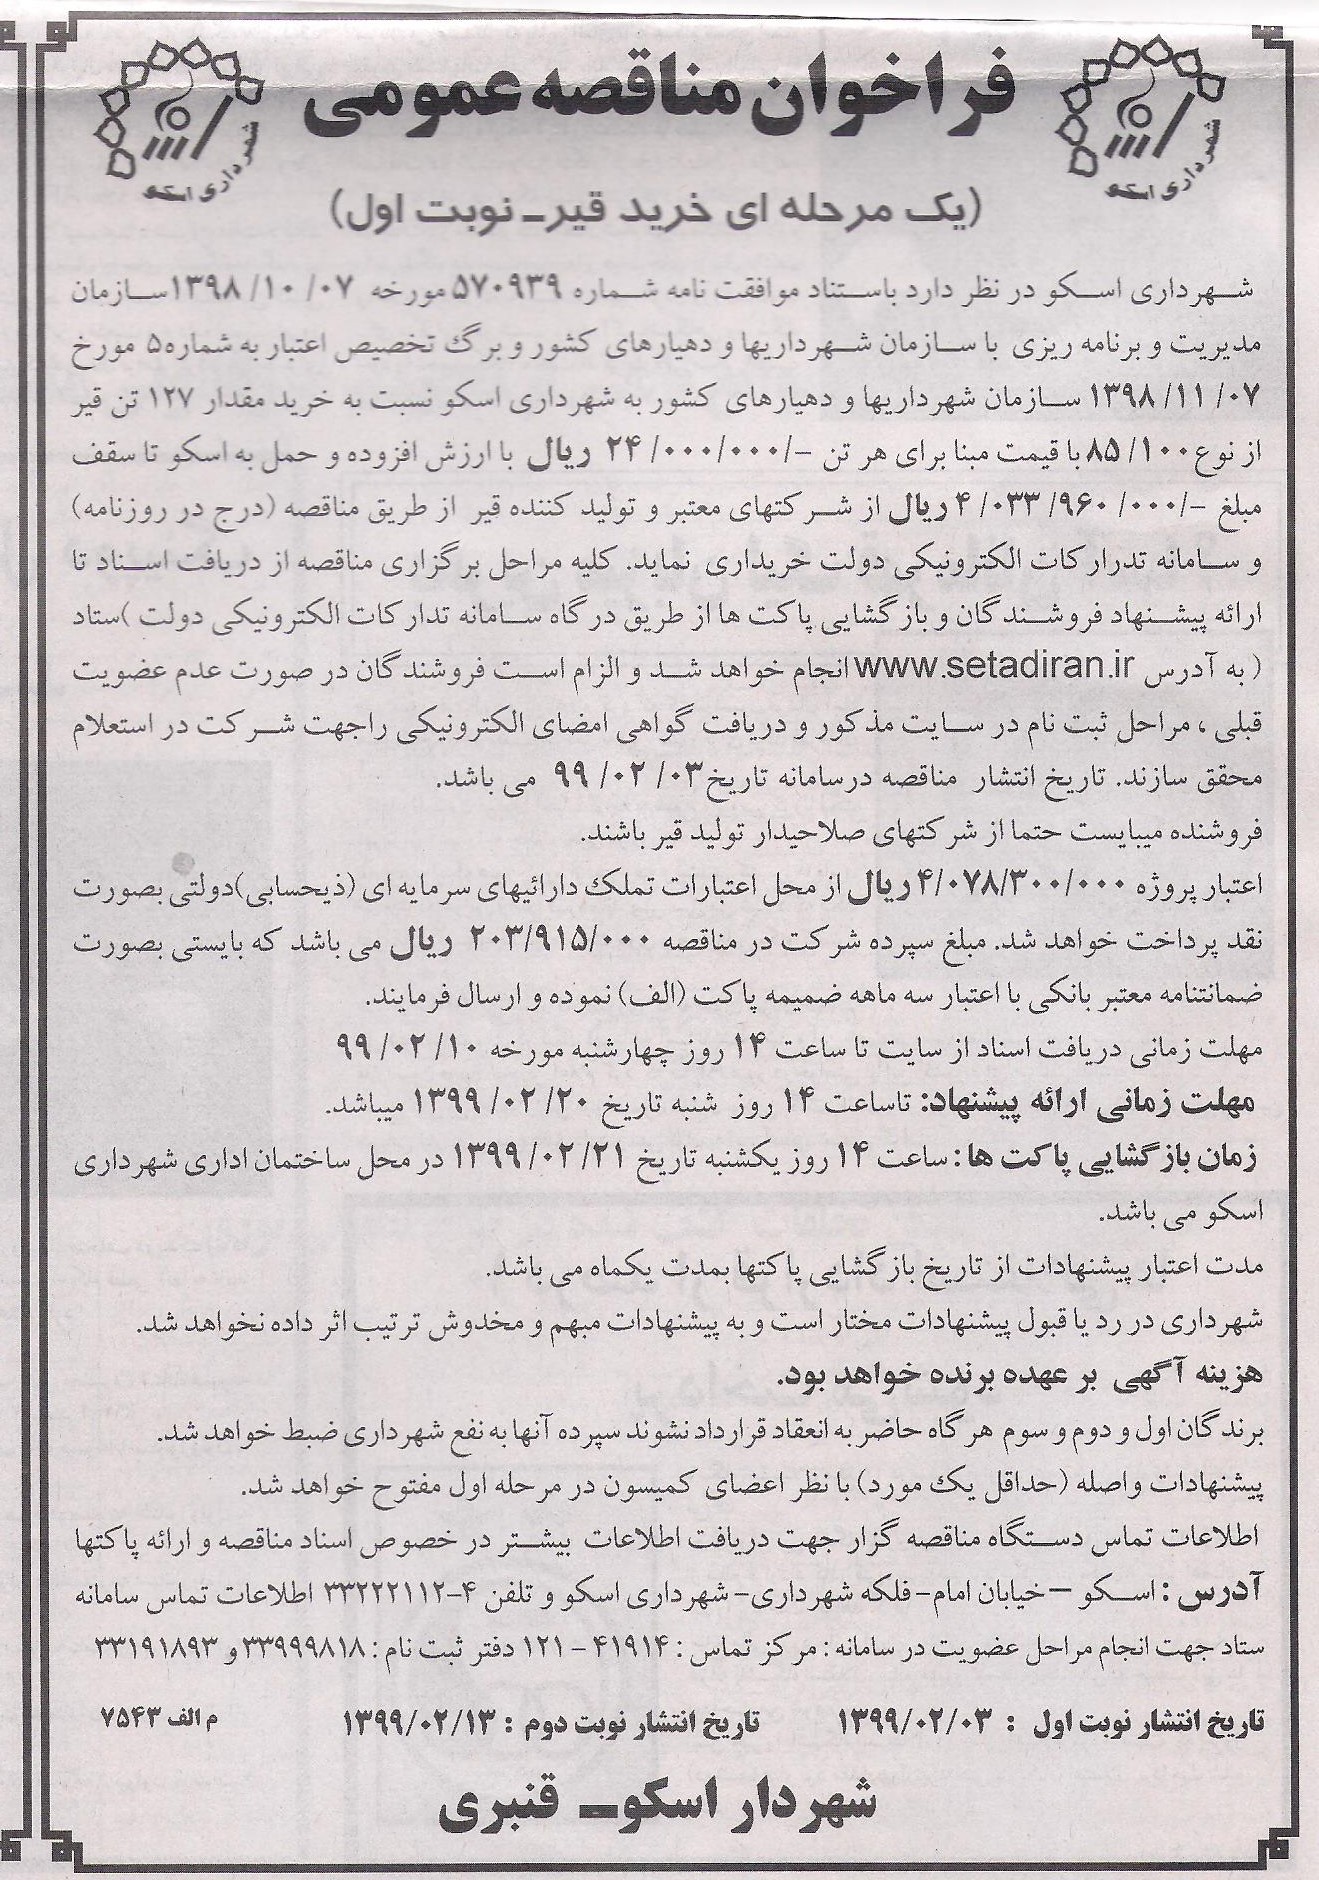 شهرداری اسکو
شهرداری اسکو
فراخوان مناقصه عمومی
(یک مرحله ای خرید قیر ـ نوبت اول)
شهرداری اسکو در نظر دارد باستناد موافقت نامه شماره ۵۷۰۹۳۹ مورخه ۱۳۹۸/۱۰/۰۷ سازمان
مدیریت و برنامه ریزی با سازمان شهرداریها و دهیارهای کشور و برگ تخصیص اعتبار به شماره۵ مورخ
۱۳۹۸/۱۱/۰۷ سازمان شهرداریها و دهیارهای کشور به شهرداری اسکو نسبت به خرید مقدار ۱۲۷ تن قیر
از نوع ۸۵/۱۰۰ با قیمت مبنا برای هر تن -/۲۴/۰۰۰/۰۰۰ ریال با ارزش افزوده و حمل به اسکو تا سقف
مبلغ -/۴/۰۳۳/۹۶۰/۰۰۰ ریال از شرکتهای معتبر و تولید کننده قیر از طریق مناقصه (درج در روزنامه)
و سامانه تدرارکات الکترونیکی دولت خریداری نماید. کلیه مراحل برگزاری مناقصه از دریافت اسناد تا
ارائه پیشنهاد فروشندگان و بازگشایی پاکت ها از طریق درگاه سامانه تدارکات الکترونیکی دولت )ستاد
( به آدرس www.setadiran.ir انجام خواهد شد و الزام است فروشندگان در صورت عدم عضویت
قبلی ، مراحل ثبت نام در سایت مذکور و دریافت گواهی امضای الکترونیکی راجهت شرکت در استعلام
محقق سازند. تاریخ انتشار مناقصه درسامانه تاریخ ۹۹/۰۲/۰۳ می باشد.
فروشنده میبایست حتما از شرکتهای صلاحیدار تولید قیر باشند.
اعتبار پروژه ۴/۰۷۸/۳۰۰/۰۰۰ ریال از محل اعتبارات تملک دارائیهای سرمایه ای (ذیحسابی)دولتی بصورت
نقد پرداخت خواهد شد. مبلغ سپرده شرکت در مناقصه ۲۰۳/۹۱۵/۰۰۰ ریال می باشد که بایستی بصورت
ضمانتنامه معتبر بانکی با اعتبار سه ماهه ضمیمه پاکت (الف) نموده و ارسال فرمایند.
مهلت زمانی دریافت اسناد از سایت تا ساعت ۱۴ روز چهارشنبه مورخه ۹۹/۰۲/۱۰
مهلت زمانی ارائه پیشنهاد: تاساعت ۱۴ روز شنبه تاریخ ۱۳۹۹/۰۲/۲۰ میباشد.
زمان بازگشایی پاکت ها: ساعت ۱۴ روز یکشنبه تاریخ ۱۳۹۹/۰۲/۲۱ در محل ساختمان اداری شهرداری
اسکو می باشد.
مدت اعتبار پیشنهادات از تاریخ بازگشایی پاکتها بمدت یکماه می باشد.
شهرداری در رد یا قبول پیشنهادات مختار است و به پیشنهادات مبهم و مخدوش ترتیب اثر داده نخواهد شد.
هزینه آگهی بر عهده برنده خواهد بود.
برندگان اول و دوم و سوم هرگاه حاضر به انعقاد قرارداد نشوند سپرده آنها به نفع شهرداری ضبط خواهد شد.
پیشنهادات واصله (حداقل یک مورد) با نظر اعضای کمیسون در مرحله اول مفتوح خواهد شد.
اطلاعات تماس دستگاه مناقصه گزار جهت دریافت اطلاعات بیشتر در خصوص اسناد مناقصه و ارائه پاکتها
آدرس : اسکو – خیابان امام- فلکه شهرداری- شهرداری اسکو و تلفن ۴-۳۳۲۲۲۱۱۲ اطلاعات تماس سامانه
ستاد جهت انجام مراحل عضویت در سامانه : مرکز تماس : ۴۱۹۱۴ - ۱۲۱ دفتر ثبت نام : ۳۳۹۹۹۸۱۸ و ۳۳۱۹۱۸۹۳
تاریخ انتشار نوبت اول : ۱۳۹۹/۰۲/۰۳ تاریخ انتشار نوبت دوم : ۱۳۹۹/۰۲/۱۳ م الف ۷۵۴۳
شهردار اسکو ـ قنبری